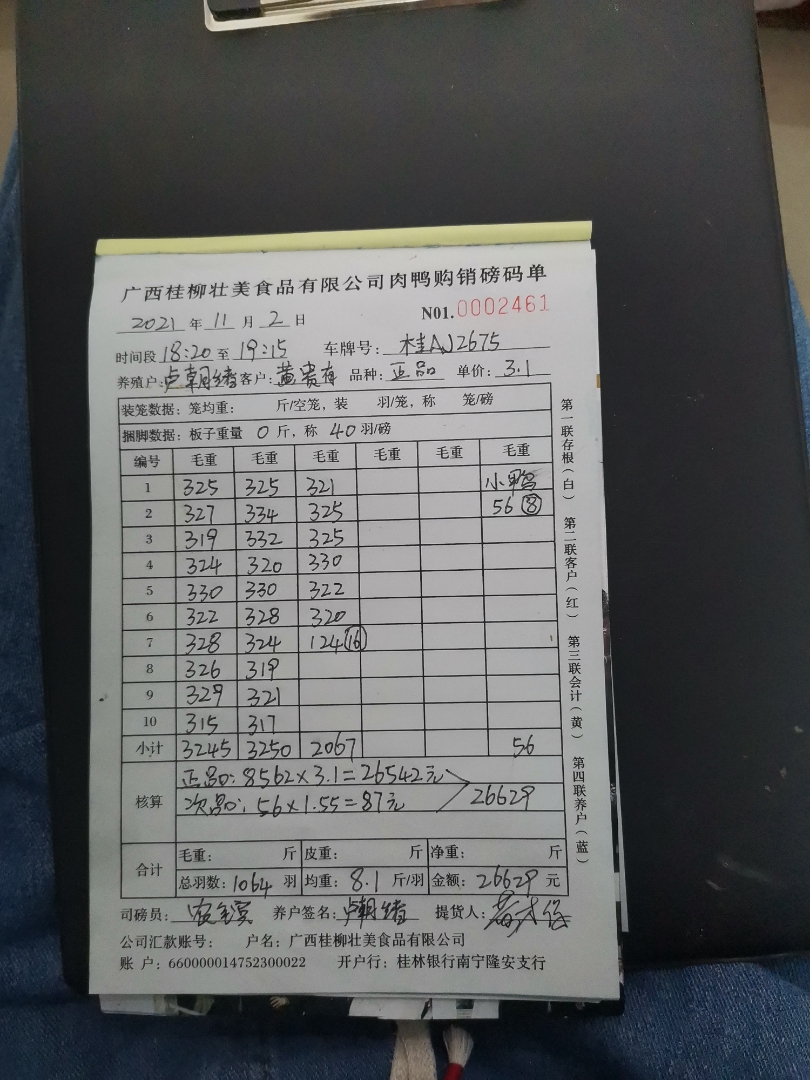 广西桂柳壮美食品有限公司肉鸭购销磅码单
2021 年 11 月 2 日 N01.0002461
时间段 18:20 至 19:15 车牌号: 桂AJ2675
养殖户: 卢朝绪 客户: 黄贵存 品种: 正品 单价: 3.1
装笼数据: 笼均重: 斤/空笼, 装 羽/笼, 称 笼/磅
捆脚数据: 板子重量 0 斤, 称 40 羽/磅
编号 毛重 毛重 毛重 毛重 毛重 毛重
1 325 325 321 小鸭
2 327 334 325 56 ⑧
3 319 332 325
4 324 320 330
5 330 330 322
6 322 328 320
7 328 324 124 ⑯
8 326 319
9 329 321
10 315 317
小计 3245 3250 2067 56
核算
正品: 8562×3.1=26542元
次品: 56×1.55=87元
26629
合计
毛重: 斤 皮重: 斤 净重: 斤
总羽数: 1064 羽 均重: 8.1 斤/羽 金额: 26629 元
司磅员: 养户签名: 卢朝绪 提货人:
公司汇款账号: 户名: 广西桂柳壮美食品有限公司
账 户: 660000014752300022 开户行: 桂林银行南宁隆安支行
第一联存根(白) 第二联客户(红) 第三联会计(黄) 第四联养户(蓝)